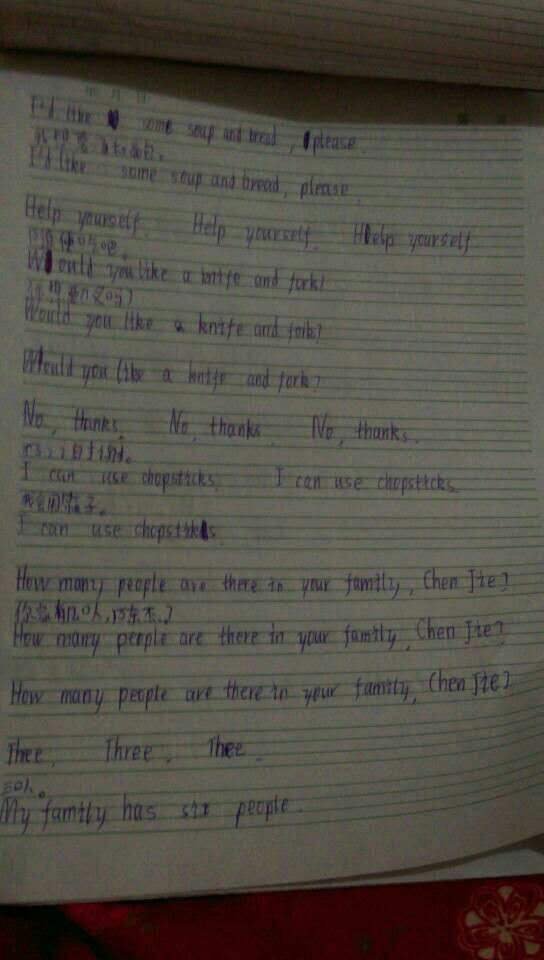 I'd like some soup and bread, please.
I'd like some soup and bread, please.
Help yourself. Help yourself. Help yourself.
Would you like a knife and fork?
Would you like a knife and fork?
Would you like a knife and fork?
No, thanks. No, thanks. No, thanks.
I can use chopsticks. I can use chopsticks.
我会用筷子。
I can use chopsticks.
How many people are there in your family, Chen Jie?
How many people are there in your family, Chen Jie?
How many people are there in your family, Chen Jie?
Thee. Three. Thee.
三口人。
My family has six people.